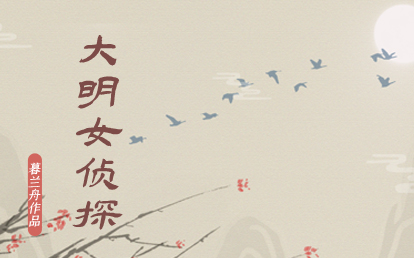 大明女侦探
暮兰舟作品